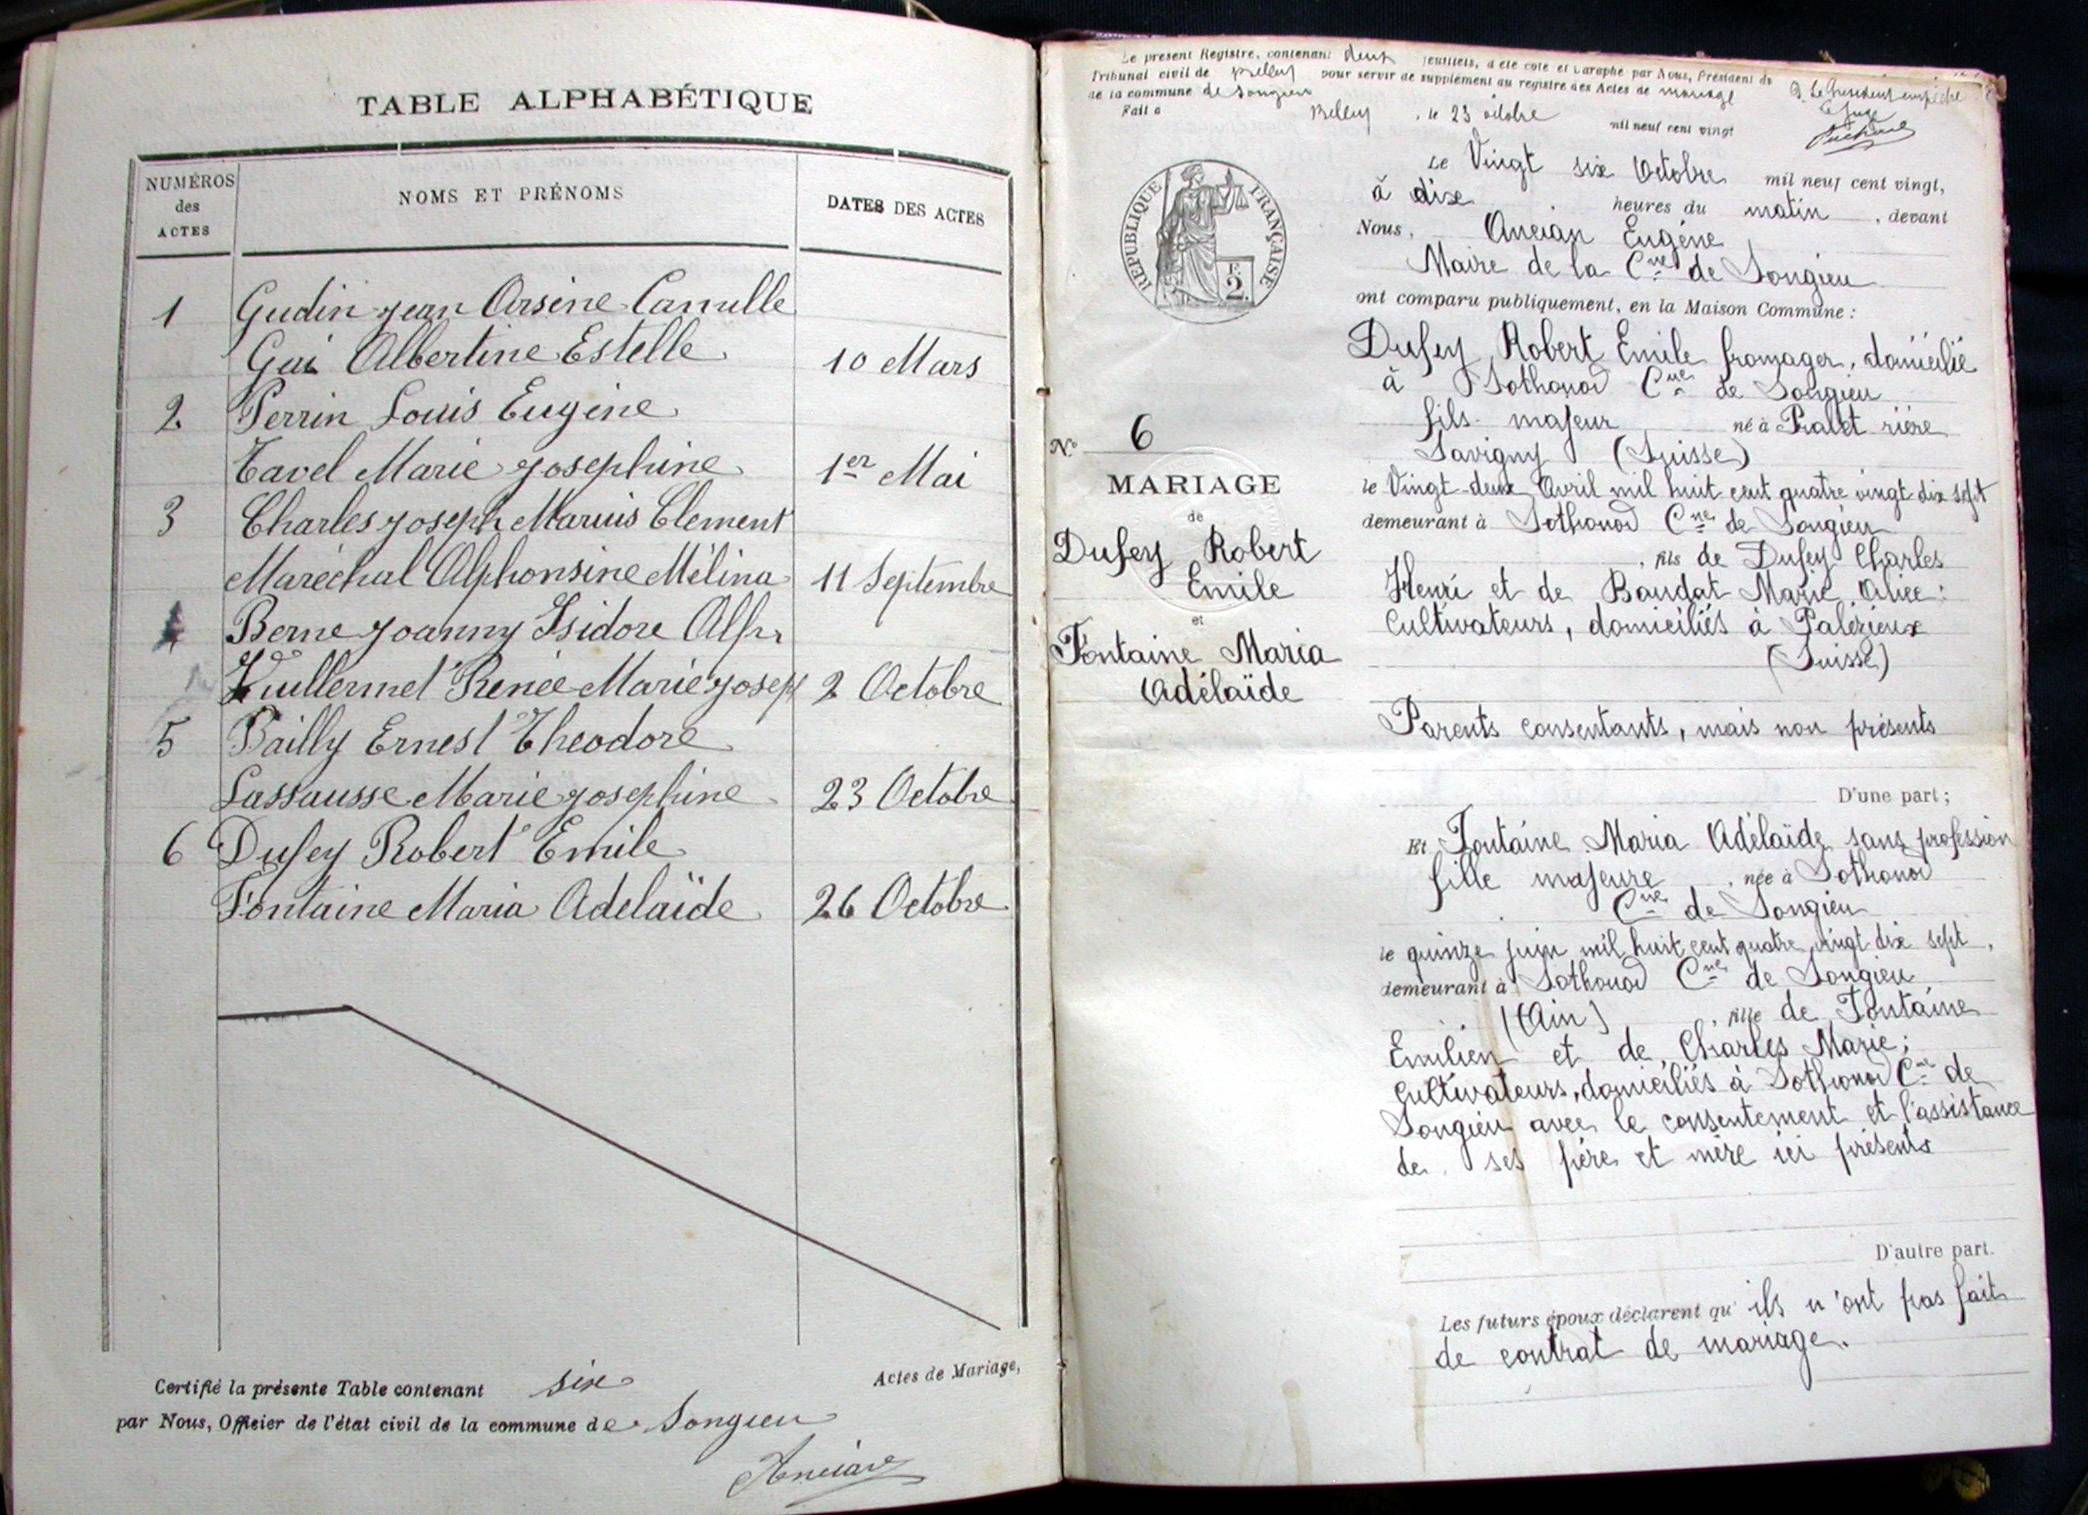 TABLE ALPHABÉTIQUE
NUMÉROS
des
ACTES
NOMS ET PRÉNOMS
DATES DES ACTES
1 Gudin Jean Arsène Camille
Gai Albertine Estelle 10 Mars
2 Perrin Louis Eugène
Tavel Marie Josephine 1er Mai
3 Charles Joseph Marius Clement
Maréchal Alphonsine Mélina 11 Septembre
4 Berne Joanny Isidore
Vuillermet Renée Marie Joseph 2 Octobre
5 Bailly Ernest Theodore
Lassausse Marie Josephine 23 Octobre
6 Dufey Robert Emile
Fontaine Maria Adelaïde 26 Octobre
Certifié la présente Table contenant six Actes de Mariage,
par Nous, Officier de l'état civil de la commune de Songieu
Anciān
Le présent Registre, contenant deux feuillets, a été coté et paraphé par Nous, Président du
Tribunal civil de Belley pour servir de supplément au registre des Actes de mariage
de la commune de Songieu
Fait à Belley, le 23 octobre mil neuf cent vingt
P. Le Président empêché
Le Juge
RÉPUBLIQUE FRANÇAISE
F.
2.
Le Vingt six Octobre mil neuf cent vingt,
à dix heures du matin, devant
Nous, Ancian Eugène
Maire de la Cne de Songieu
ont comparu publiquement, en la Maison Commune :
Dufey Robert Emile fromager, domicilié
à Sothonod Cne de Songieu
fils majeur né à Pralet rière
Savigny (Suisse)
le Vingt-deux Avril mil huit cent quatre vingt dix sept
demeurant à Sothonod Cne de Songieu
, fils de Dufey Charles
Henri et de Baudat Marie Alice :
Cultivateurs, domiciliés à Palézieux
(Suisse)
Parents consentants, mais non présents
D'une part ;
No 6
MARIAGE
de
Dufey Robert
Emile
et
Fontaine Maria
Adélaïde
Et Fontaine Maria Adélaïde sans profession
fille majeure, née à Sothonod
Cne de Songieu
le quinze juin mil huit cent quatre vingt dix sept,
demeurant à Sothonod Cne de Songieu
(Ain), fille de Fontaine
Emilien et de Charles Marie ;
Cultivateurs, domiciliés à Sothonod Cne de
Songieu avec le consentement et l'assistance
de ses père et mère ici présents
D'autre part.
Les futurs époux déclarent qu'ils n'ont pas fait
de contrat de mariage.